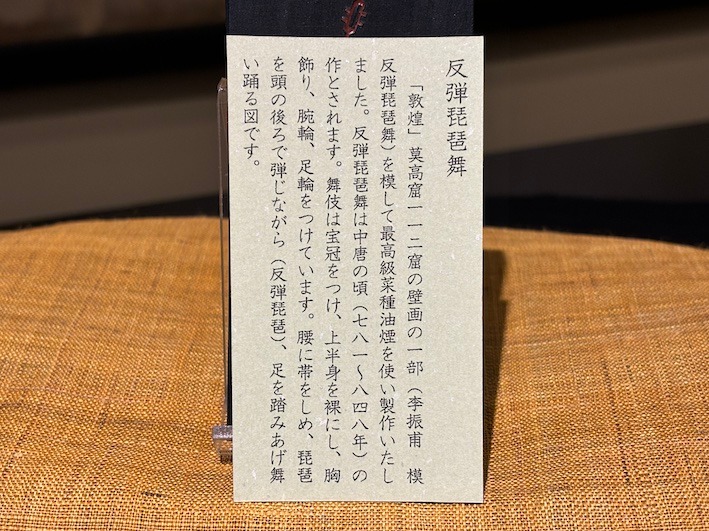 反弾琵琶舞
「敦煌」莫高窟一一二窟の壁画の一部（李振甫　模
反弾琵琶舞）を模して最高級菜種油煙を使い製作いたし
ました。反弾琵琶舞は中唐の頃（七八一～八四八年）の
作とされます。舞伎は宝冠をつけ、上半身を裸にし、胸
飾り、腕輪、足輪をつけています。腰に帯をしめ、琵琶
を頭の後ろで弾じながら（反弾琵琶）、足を踏みあげ舞
い踊る図です。